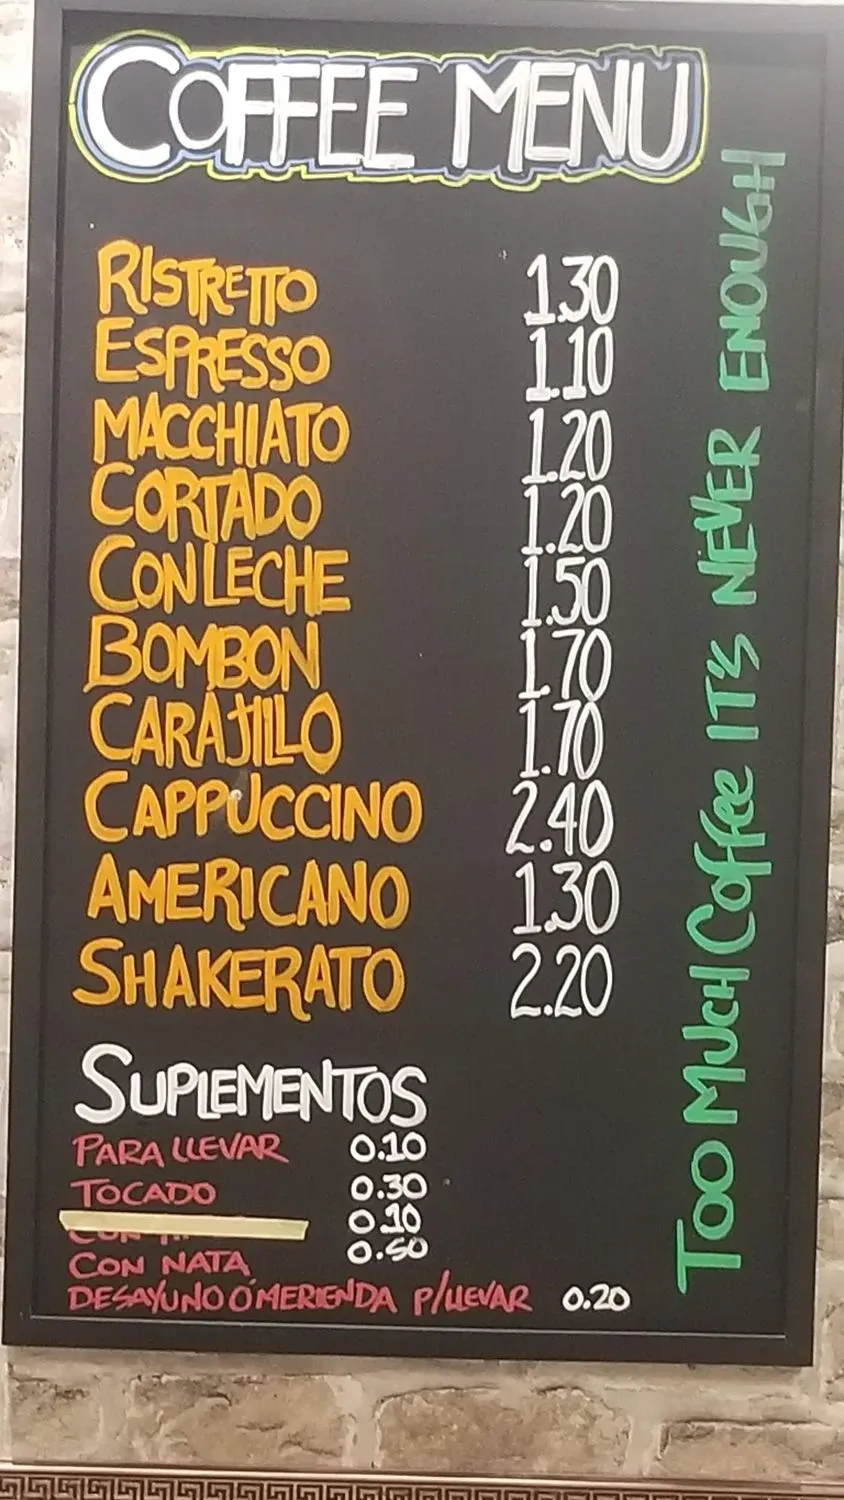 COFFEE MENU
RISTRETTO 1.30
ESPRESSO 1.10
MACCHIATO 1.20
CORTADO 1.20
CON LECHE 1.50
BOMBON 1.70
CARAJILLO 1.70
CAPPUCCINO 2.40
AMERICANO 1.30
SHAKERATO 2.20
SUPLEMENTOS
PARA LLEVAR 0.10
TOCADO 0.30
0.10
CON NATA 0.50
DESAYUNO Ó MERIENDA P/LLEVAR 0.20
TOO MUCH Coffee IT'S NEVER ENOUGH